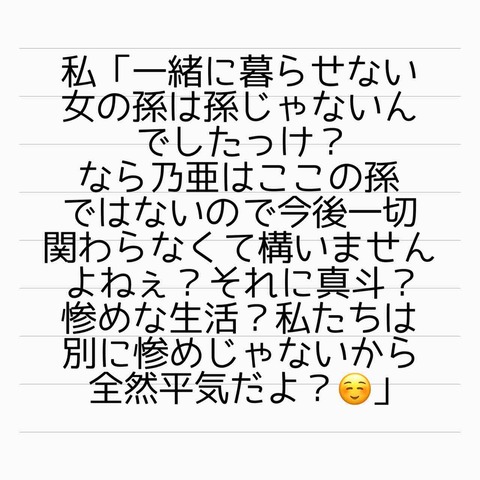 私「一緒に暮らせない
女の孫は孫じゃないん
でしたっけ？
なら乃亜はここの孫
ではないので今後一切
関わらなくて構いません
よねぇ？それに真斗？
惨めな生活？私たちは
別に惨めじゃないから
全然平気だよ？☺️」